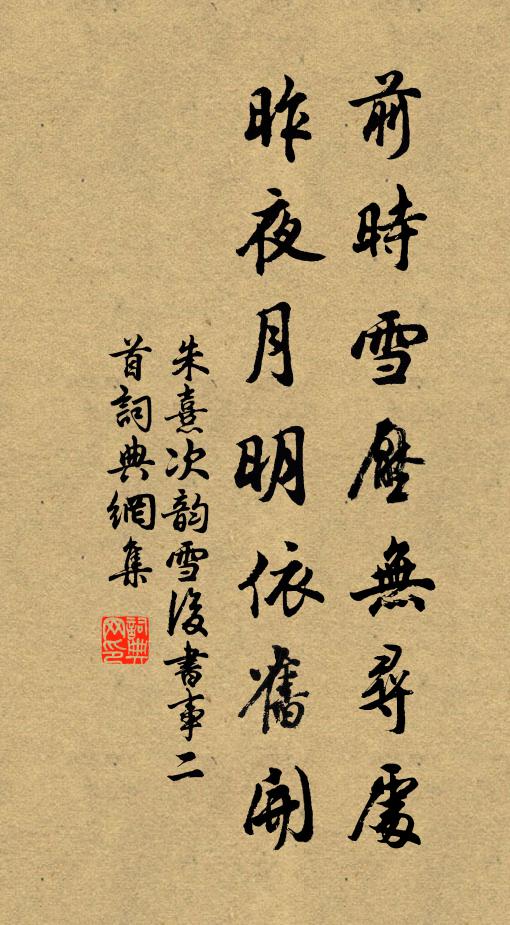 前時雪壓無尋處
昨夜月明依舊開
朱熹次韵雪後書事二
首詞典網集
詞典
网印